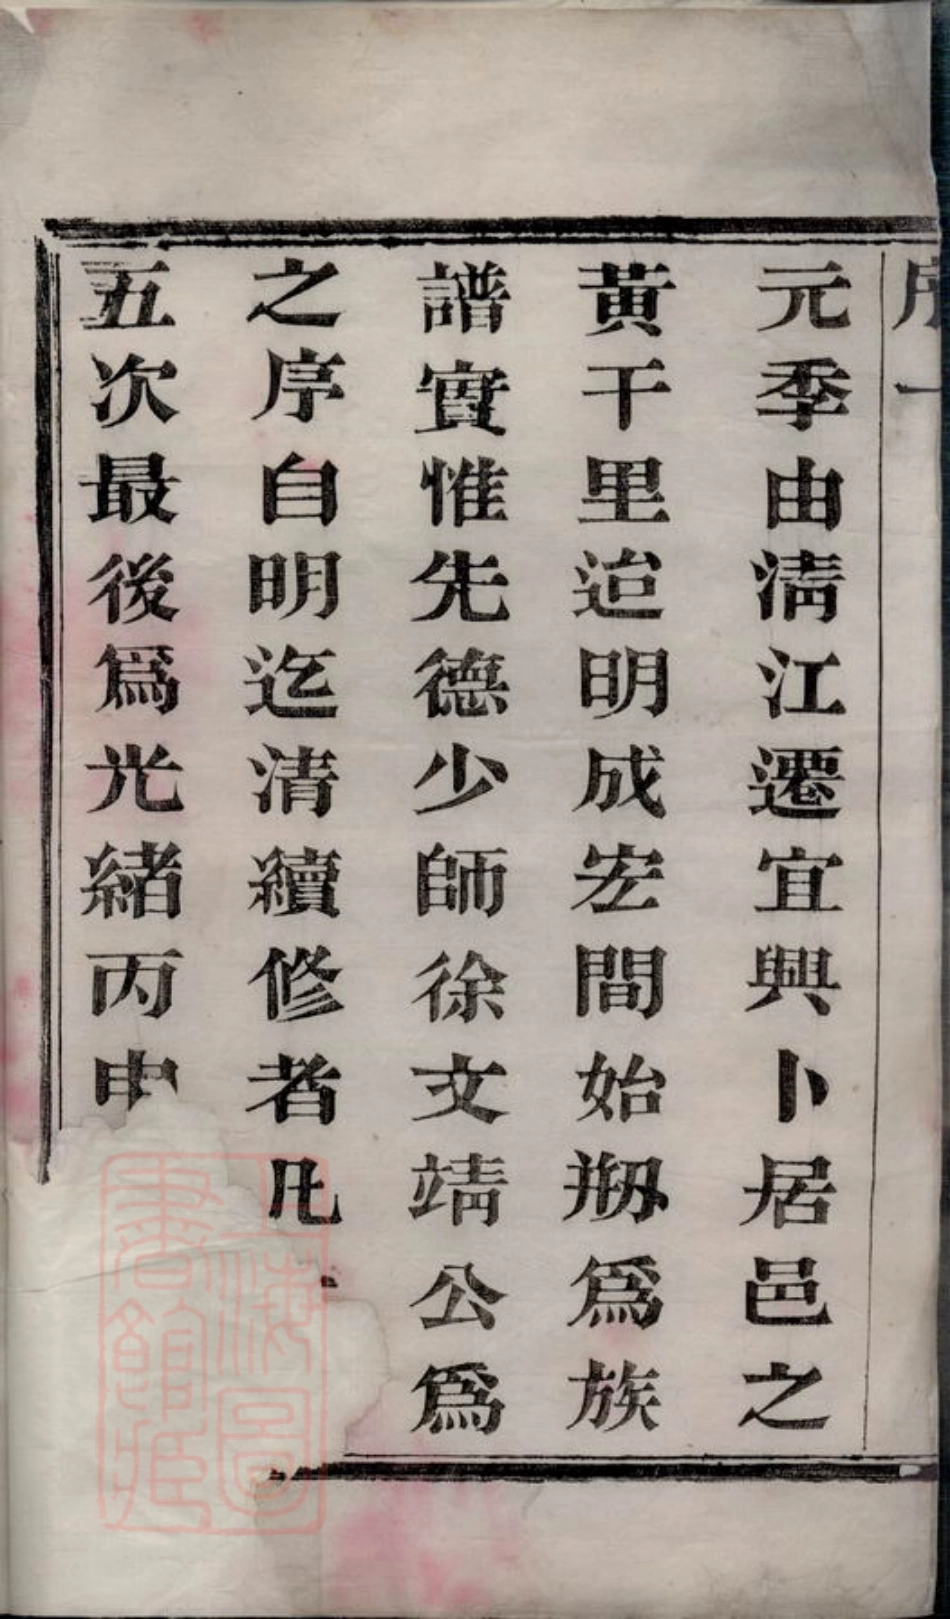 序一
元季由淸江遷宜興卜居邑之
黃干里迨明成宏間始刱爲族
譜實惟先德少師徐文靖公爲
之序自明迄清續修者凡
五次最後爲光緒丙申
上海圖
書館藏